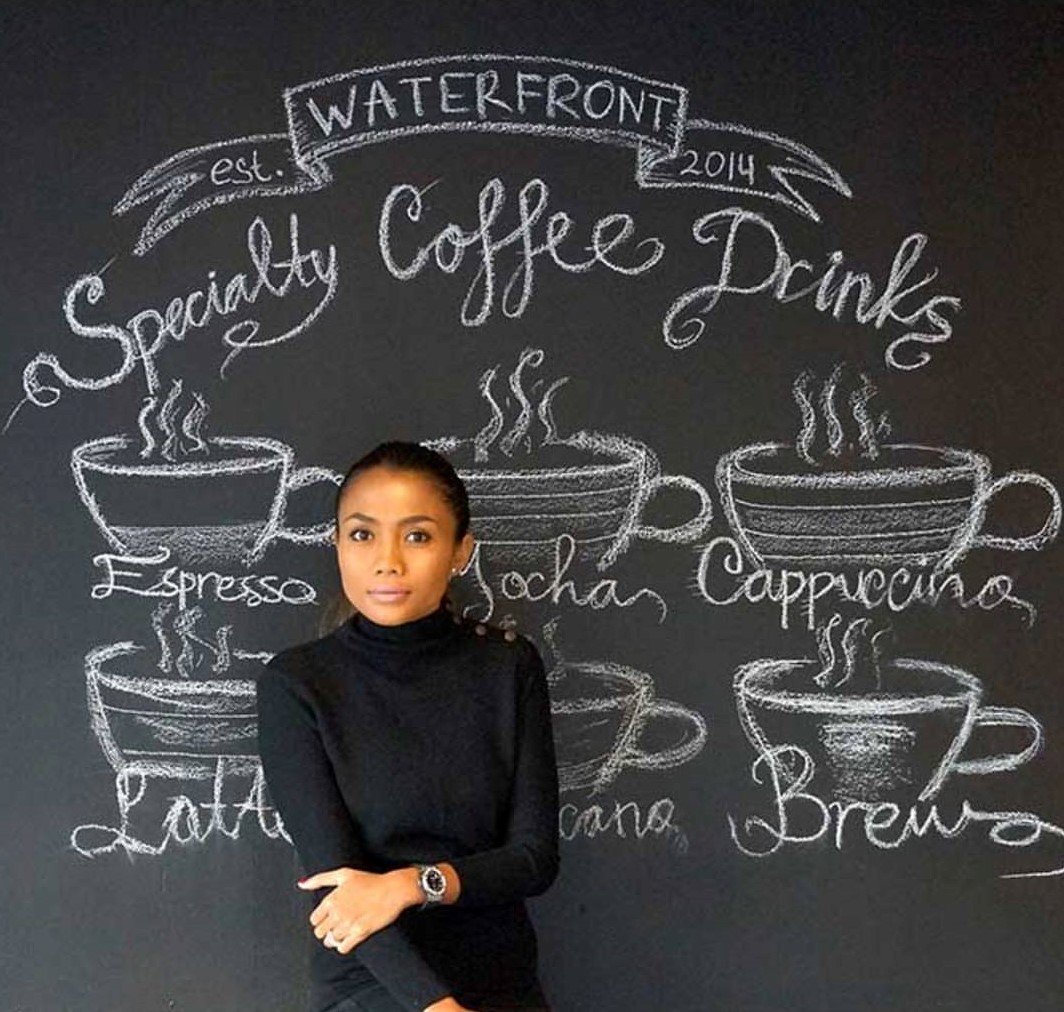 WATERFRONT
est. 2014
Specialty Coffee Drinks
Espresso ocha Cappuccino
Latt cano Brew